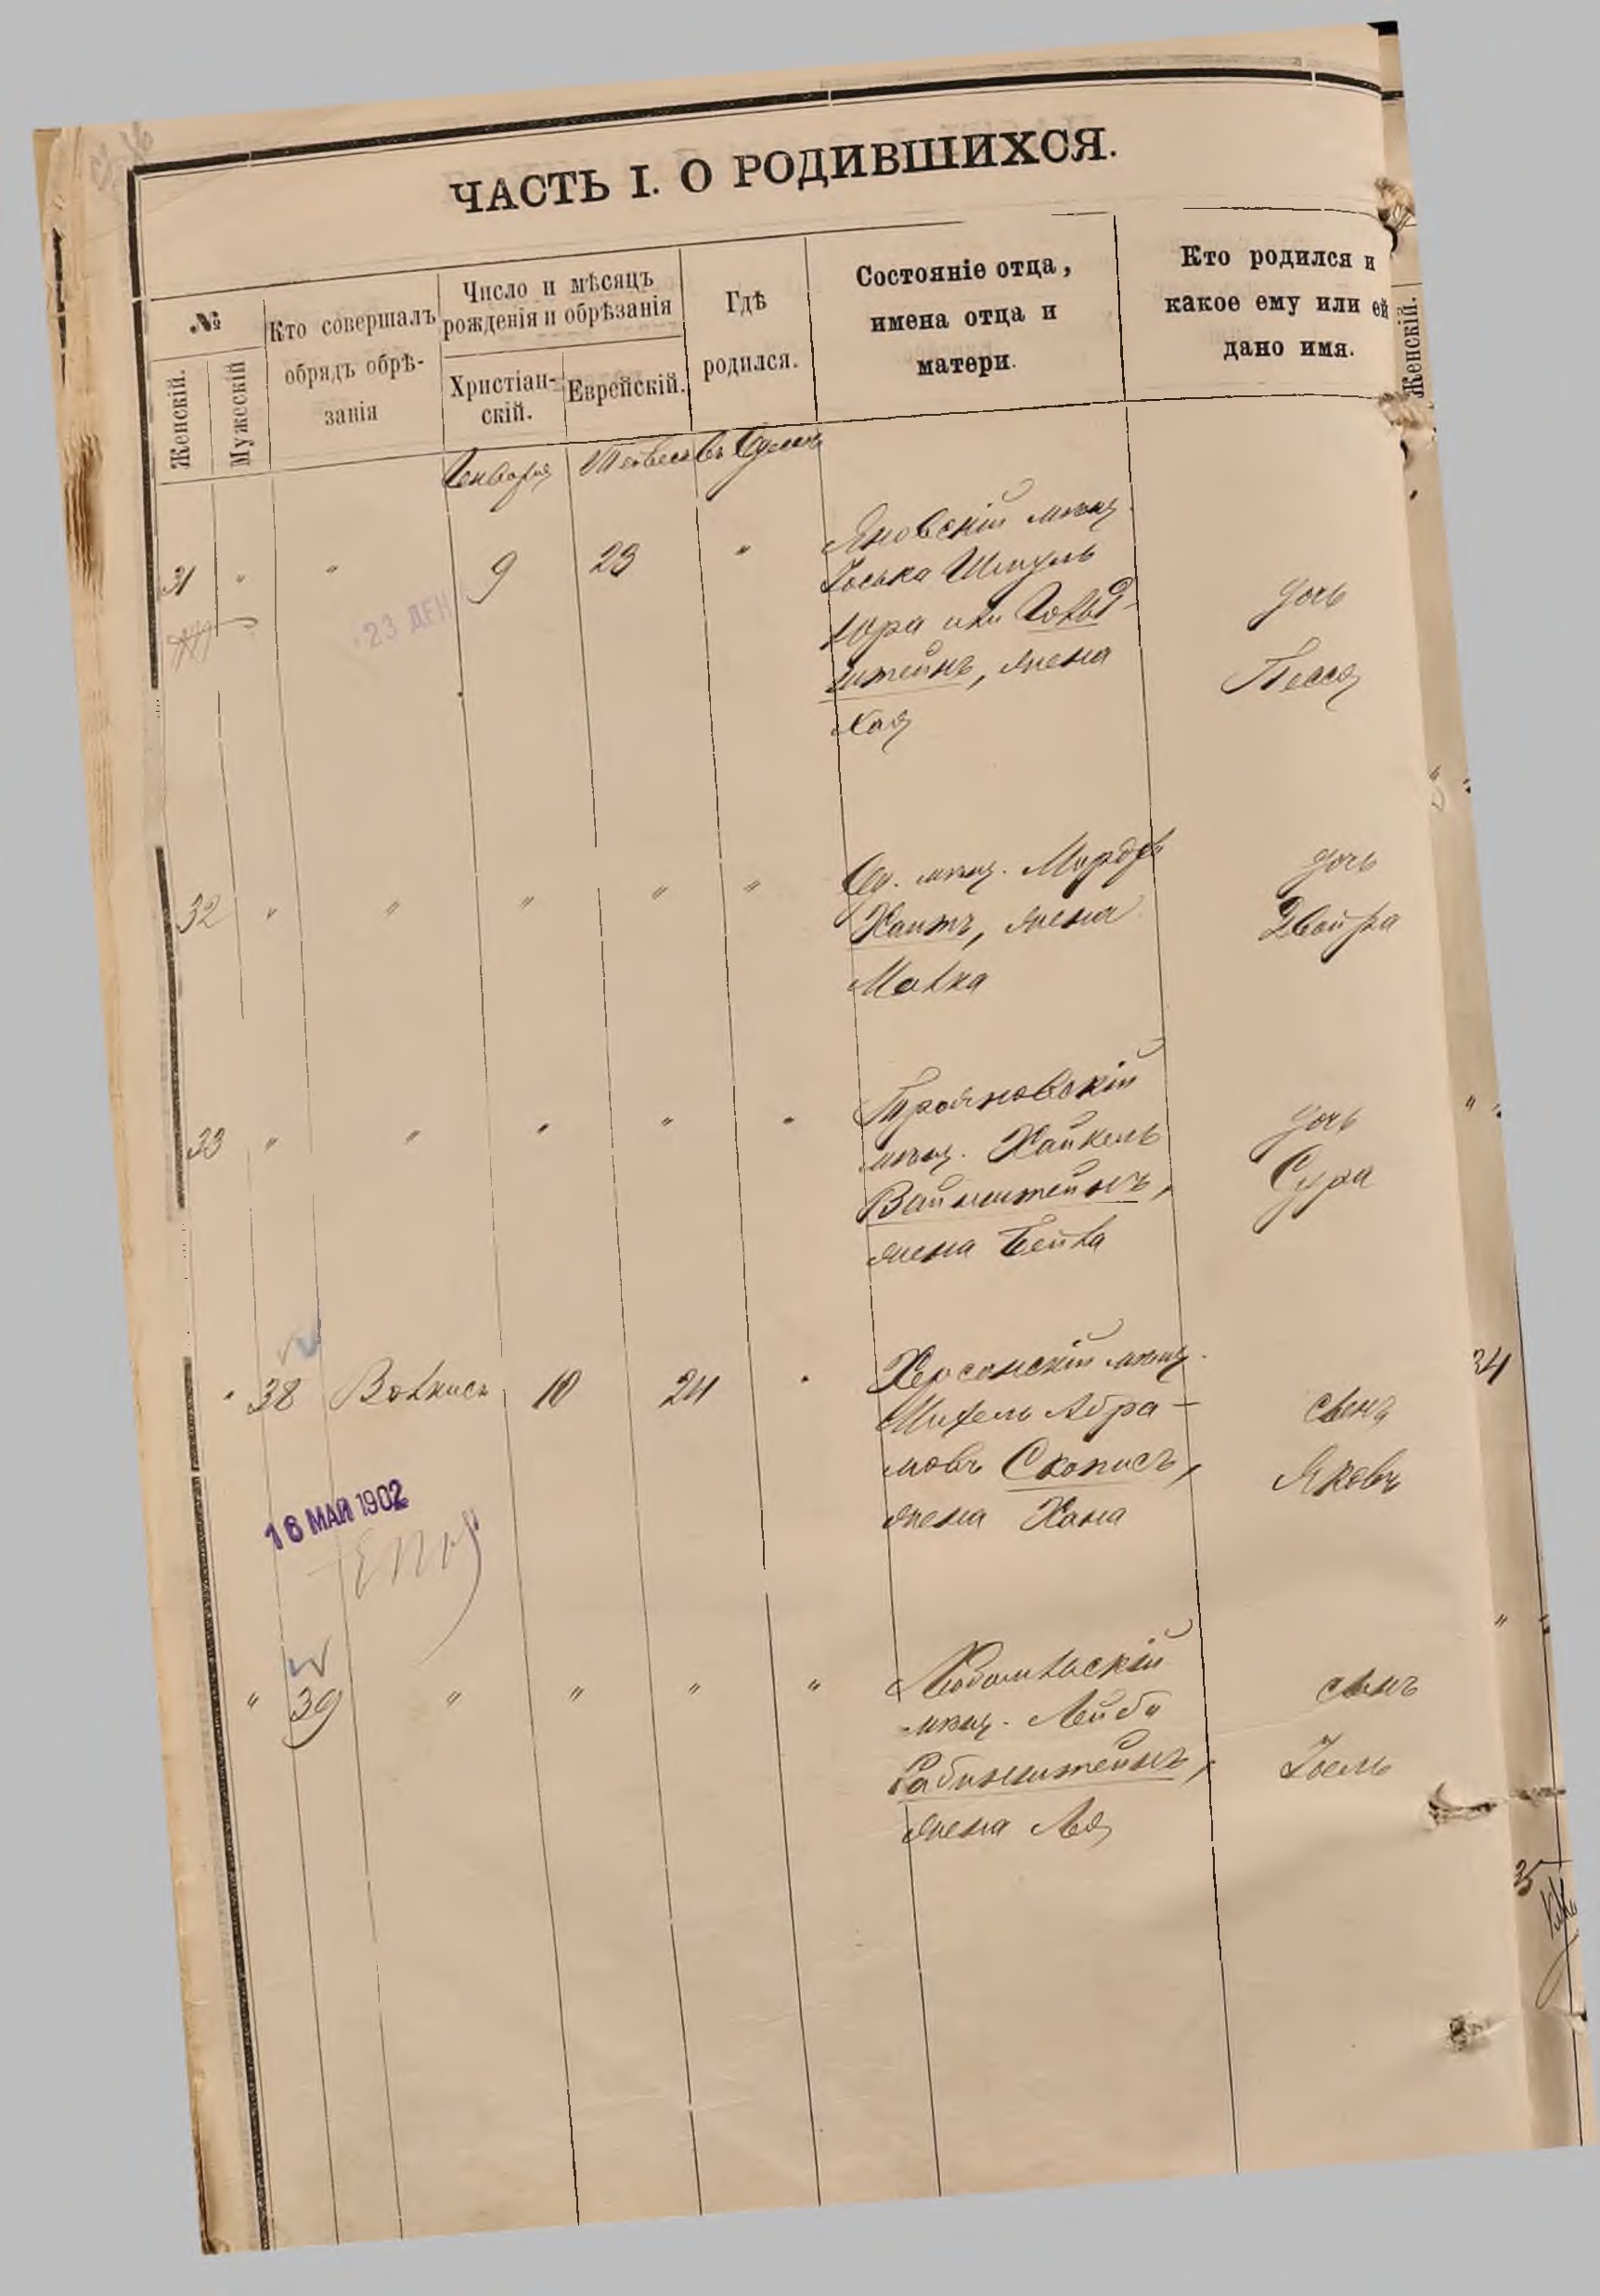 ЧАСТЬ I. О РОДИВШИХСЯ.
№
Женскій.
Мужескій
Кто совершалъ
обрядъ обрѣ-
занія
Число и мѣсяцъ
рожденія и обрѣзанія
Христіан-
скій.
Еврейскій.
Гдѣ
родился.
Состояніе отца,
имена отца и
матери.
Кто родился и
какое ему или ей
дано имя.
Женскій.
Января
31 " " 9 23 "
Яновскій мѣщ.
Іоська Шмуль
Юра или Гольд-
штейнъ, жена
Хая
дочь
Песся
23 ДЕК
32 " " " " "
Од. мѣщ. Мордко
Хаитъ, жена
Малка
дочь
Двойра
33 " " " " "
Трояновскій
мѣщ. Хайкель
Вайнштейнъ,
жена Бейла
дочь
Сура
" 38 10 24 "
Херсонскій мѣщ.
Михель Абра-
мовъ Скописъ,
жена Хана
сынъ
Яковъ
34
16 МАЯ 1902
" 39 " " " "
мѣщ. Лейба
Рабинштейнъ,
жена Лея
сынъ
Іоель
35